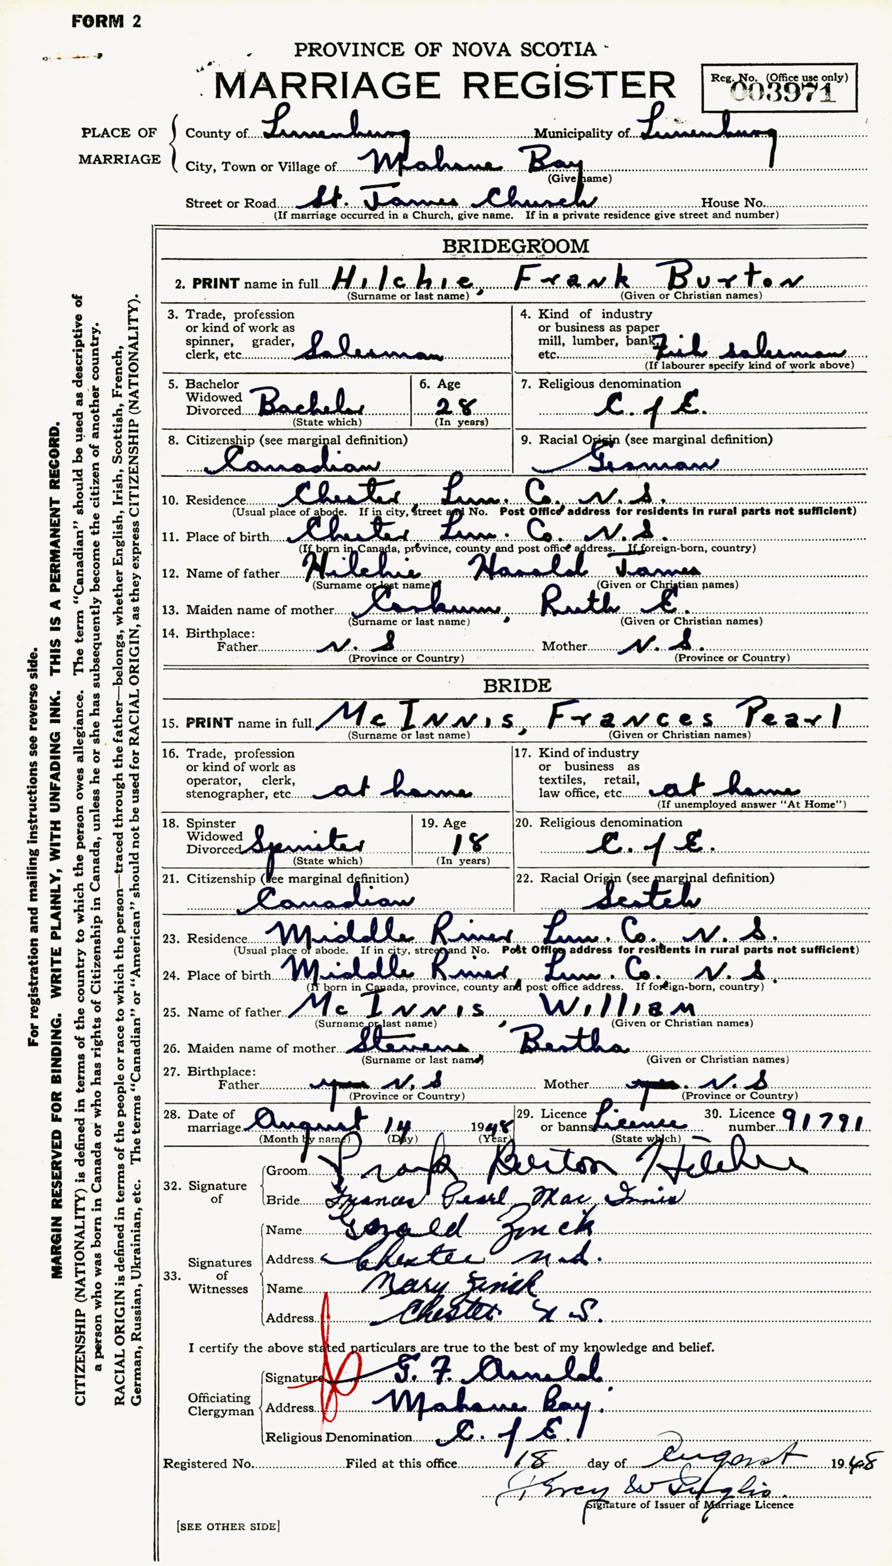 FORM 2
PROVINCE OF NOVA SCOTIA
MARRIAGE REGISTER
Reg. No. (Office use only)
003971
PLACE OF MARRIAGE
County of Lunenburg Municipality of Lunenburg
City, Town or Village of Mahone Bay
(Give name)
Street or Road St. James Church House No.
(If marriage occurred in a Church, give name. If in a private residence give street and number)
BRIDEGROOM
2. PRINT name in full Hilchie, Frank Burton
(Surname or last name) (Given or Christian names)
3. Trade, profession or kind of work as spinner, grader, clerk, etc. Salesman
4. Kind of industry or business as paper mill, lumber, bank, etc. Fish salesman
(If labourer specify kind of work above)
5. Bachelor Widowed Divorced Bachelor
(State which)
6. Age 28
(In years)
7. Religious denomination C. of E.
8. Citizenship (see marginal definition) Canadian
9. Racial Origin (see marginal definition) German
10. Residence Chester, Lun. Co. N. S.
(Usual place of abode. If in city, street and No. Post Office address for residents in rural parts not sufficient)
11. Place of birth Chester Lun. Co. N. S.
(If born in Canada, province, county and post office address. If foreign-born, country)
12. Name of father Hilchie Harold James
(Surname or last name) (Given or Christian names)
13. Maiden name of mother Corkum, Ruth E.
(Surname or last name) (Given or Christian names)
14. Birthplace:
Father N. S Mother N. S.
(Province or Country) (Province or Country)
BRIDE
15. PRINT name in full McInnis, Frances Pearl
(Surname or last name) (Given or Christian names)
16. Trade, profession or kind of work as operator, clerk, stenographer, etc. at home
17. Kind of industry or business as textiles, retail, law office, etc. at home
(If unemployed answer "At Home")
18. Spinster Widowed Divorced Spinster
(State which)
19. Age 18
(In years)
20. Religious denomination C. of E.
21. Citizenship (see marginal definition) Canadian
22. Racial Origin (see marginal definition) Scotch
23. Residence Middle River Lun. Co. N. S.
(Usual place of abode. If in city, street and No. Post Office address for residents in rural parts not sufficient)
24. Place of birth Middle River, Lun. Co. N. S.
(If born in Canada, province, county and post office address. If foreign-born, country)
25. Name of father McInnis, William
(Surname or last name) (Given or Christian names)
26. Maiden name of mother Stevens, Bertha
(Surname or last name) (Given or Christian names)
27. Birthplace:
Father N. S Mother N. S
(Province or Country) (Province or Country)
28. Date of marriage August 14 1948
(Month by name) (Day) (Year)
29. Licence or banns Licence
(State which)
30. Licence number 91791
32. Signature of
Groom Frank Burton Hilchie
Bride Frances Pearl Mac Innis
33. Signatures of Witnesses
Name Gerald Zinck
Address Chester N.S.
Name Mary Zinck
Address Chester N S.
I certify the above stated particulars are true to the best of my knowledge and belief.
Officiating Clergyman
Signature G. F. Arnold
Address Mahone Bay.
Religious Denomination C. of E.
Registered No. Filed at this office 18 day of August 1948
Signature of Issuer of Marriage Licence
[SEE OTHER SIDE]
For registration and mailing instructions see reverse side.
MARGIN RESERVED FOR BINDING. WRITE PLAINLY, WITH UNFADING INK. THIS IS A PERMANENT RECORD.
CITIZENSHIP (NATIONALITY) is defined in terms of the country to which the person owes allegiance. The term "Canadian" should be used as descriptive of
a person who was born in Canada or who has rights of Citizenship in Canada, unless he or she has subsequently become the citizen of another country.
RACIAL ORIGIN is defined in terms of the people or race to which the person—traced through the father—belongs, whether English, Irish, Scottish, French,
German, Russian, Ukrainian, etc. The terms "Canadian" or "American" should not be used for RACIAL ORIGIN, as they express CITIZENSHIP (NATIONALITY).